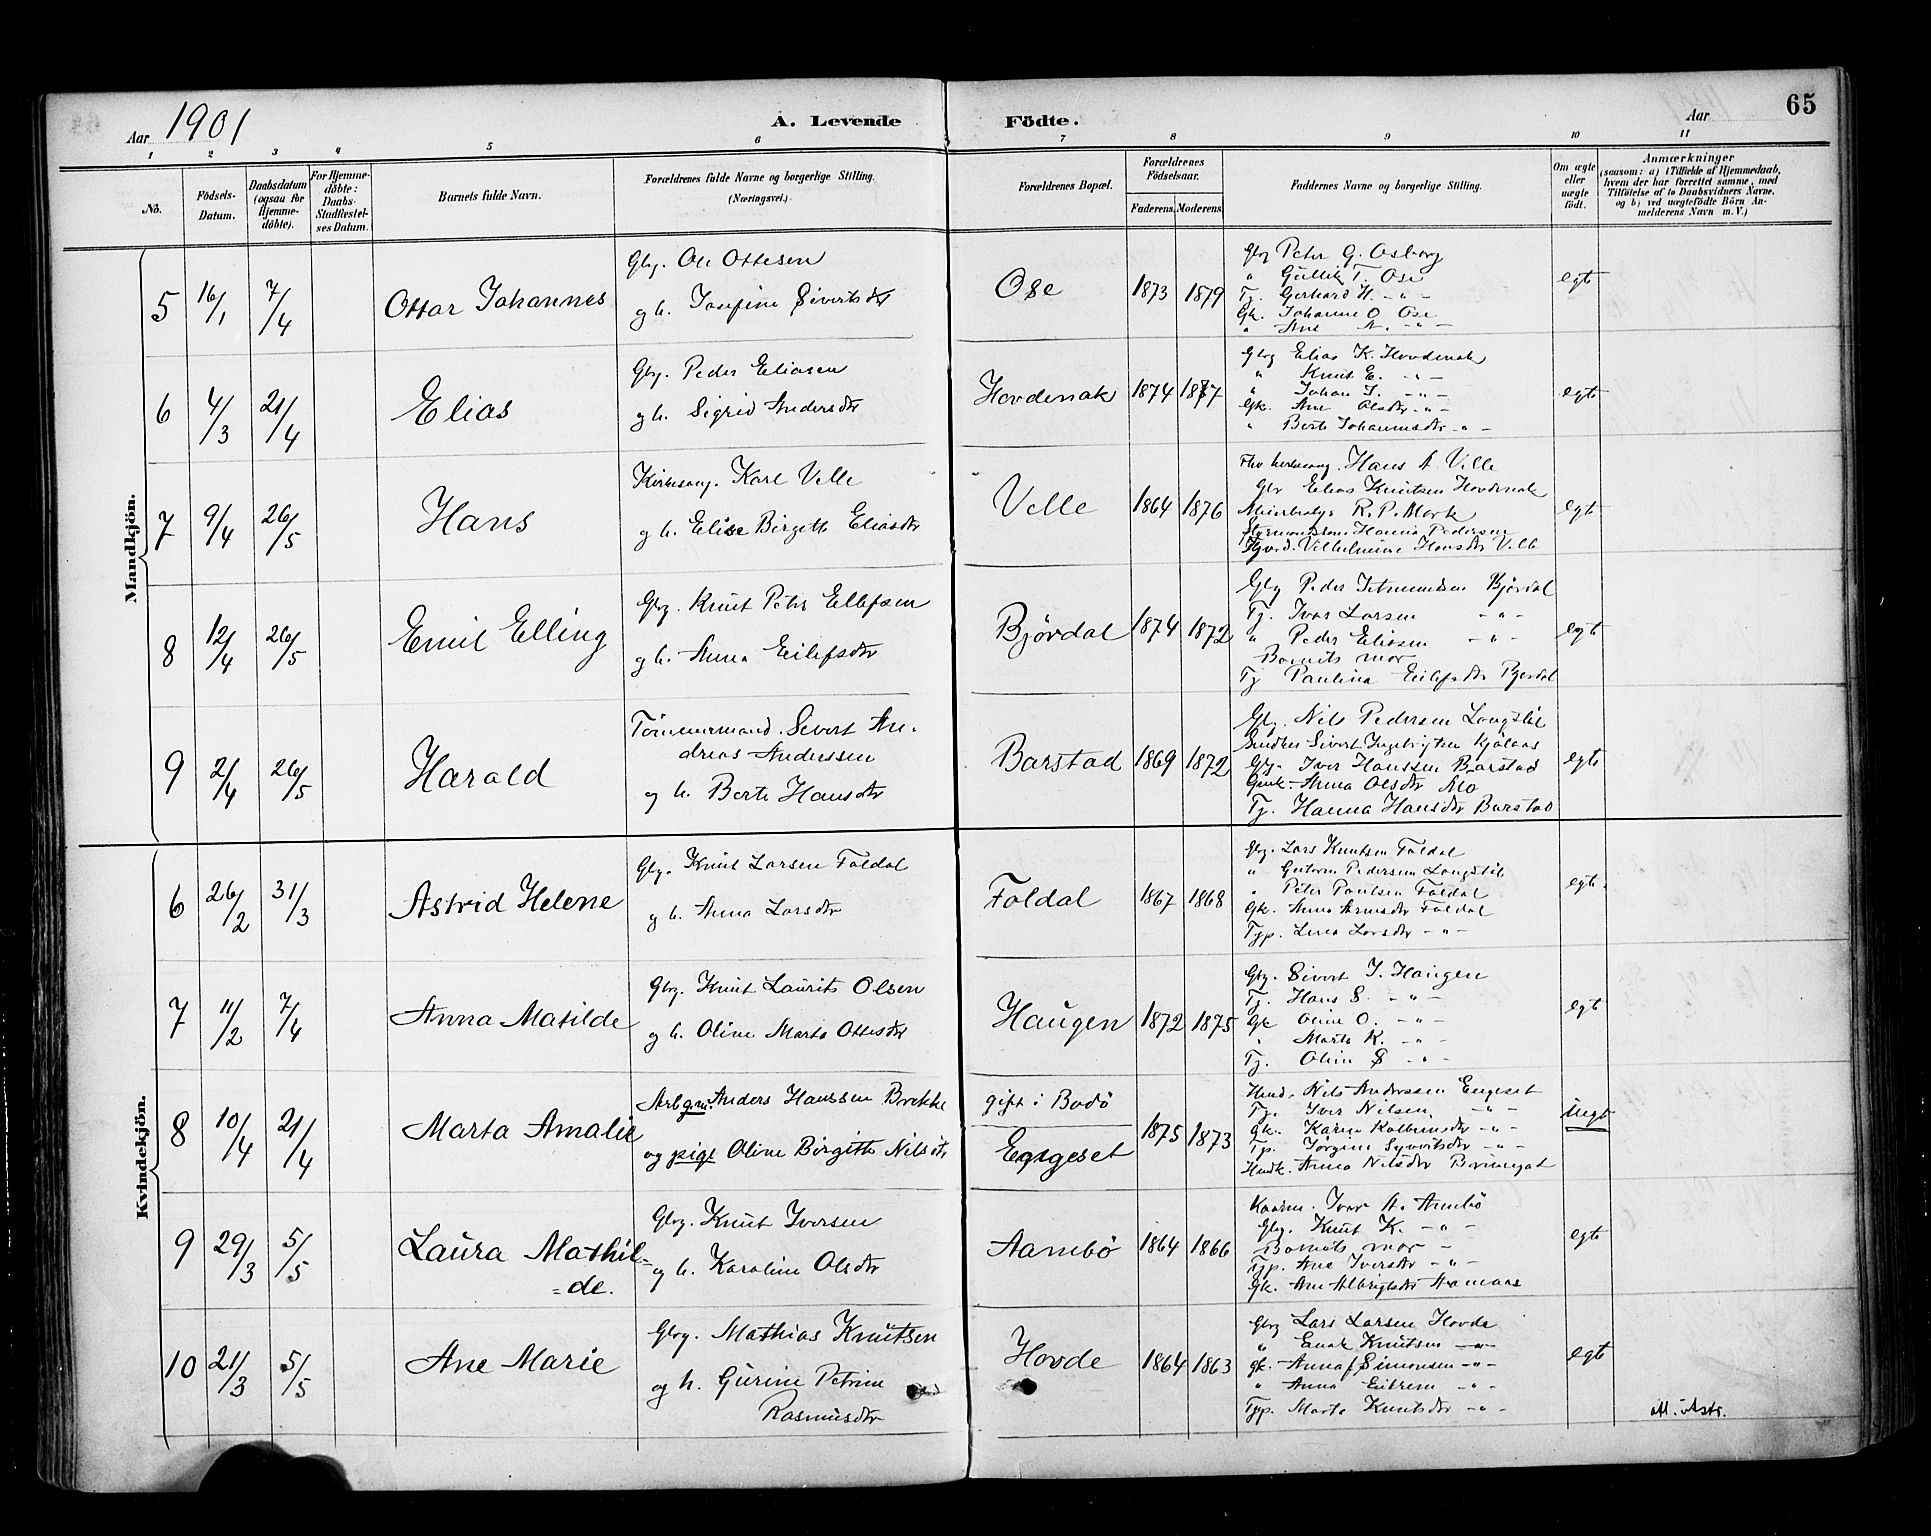 Aar 1901
A. Levende
Födte.
Aar
65
1 2 3 4 5 6 7 8 9 10 11
No.
Födsels-Datum.
Daabsdatum (ogsaa for Hjemme-döbte).
For Hjemme-döbte: Daabs-Stadfæstel-ses Datum.
Barnets fulde Navn.
Forældrenes fulde Navne og borgerlige Stilling. (Næringsvei.)
Forældrenes Bopæl.
Forældrenes Födselsaar.
Faderens. Moderens.
Faddernes Navne og borgerlige Stilling.
Om ægte eller uægte födt.
Anmærkninger
(saasom: a) i Tilfælde af Hjemmedaab, hvem der har forrettet samme, med Tilföielse af to Daabsvidners Navne, og b) ved uægtefödte Börn An-melderens Navn m. V.)
Mandkjön.
5 16/1 7/4 Ottar Johannes
Gbr. Ole Ottesen
og h. Josefine Sivertsdtr
Ose 1873 1879
Gbr Peter G. Osborg
" Gullik T. Ose
Tj. Gerhard H. - " -
Gk. Johanne O Ose
" Ane A. - " -
egt
6 4/3 21/4 Elias
Gbr. Peder Eliasen
og h. Sigrid Andersdtr
Hovdenak 1874 1877
Gbr Elias K. Hovdenak
" Knut E. - " -
" Johan J. - " -
Gk. Ane Olsdtr - " -
" Berte Johannesdtr - " -
egt
7 9/4 26/5 Hans
Kirkesang. Karl Velle
og h. Elise Birgitte Eliasdtr
Velle 1864 1876
Fhv kirkesang. Hans A. Velle
Gbr Elias Knutsen Hovdenak
R. P. Mork
Hanna Pedersen
Vilhelmine Hansdtr Velle
egt
8 12/4 26/5 Emil Elling
Gbr. Knut Peter Ellefsen
og h. Anna Eilefsdtr
Bjørdal 1874 1872
Gbr Peder Bjørdal
Tj. Ivar Larsen - " -
" Peder Eliasen - " -
Barnets mor
Tj Paulina Eilefsdtr Bjørdal
egt
9 2/4 26/5 Harald
Tömmermand. Sivert An-
dreas Anderssen
og h. Berte Hansdtr
Barstad 1869 1872
Gbr. Nils Pedersen Langstil
Snedker Sivert Ingebrigtsen Kjölaas
Gbr. Iver Hanssen Barstad
Anna Olsdtr Mo
Tj. Hanna Hansdtr Barstad
egt
Kvindekjön.
6 26/2 31/3 Astrid Helene
Gbr. Knut Larsen Foldal
og h. Anna Larsdtr
Foldal 1867 1868
Gbr. Lars Knutsen Foldal
" Guttorm Pedersen Langstil
" Peter Paulsen Foldal
Gk. Anna Arnesdtr Foldal
Tjp. Lina Larsdtr - " -
egt.
7 11/2 7/4 Anna Matilde
Gbr. Knut Laurits Olsen
og h. Oline Marta Ottesdtr
Haugen 1872 1875
Gbr. Sivert J. Haugen
Tj. Hans S. - " -
Gk Oline O. - " -
" Marte K. - " -
Tj. Olin S - " -
egt
8 10/4 21/4 Marta Amalie
Arbgm. Anders Hanssen Brekke
og pige Oline Birgitte Nilsdtr
gift i Bodö
Engeset 1875 1873
Nils Anderssen Engeset
Tj. Iver Nilsen - " -
Gk. Karen - " -
Tp. Jørgine Syvertsdtr - " -
Anna Nilsdtr
uegt
9 29/3 5/5 Laura Mathil-
=de.
Gbr. Knut Iversen
og h. Karoline Olsdtr
Aambö 1864 1866
Kaarm. Ivar A. Aambö
Gbr. Knut K. - " -
Barnets mor -
Tjp. Ane Iversdtr - " -
Gk. Ane Albrigtsdtr Aamaas
egt
10 21/3 5/5 Ane Marie
Gbr. Mathias Knutsen
og h. Gurine Petrine
Rasmusdtr
Hovde 1864 1863
Gbr Lars Larsen Hovde
" Enok Knutsen - " -
gk. Anna Simonsen - " -
" Anna Eikrem - " -
Tjp. Marte Knutsdtr - " -
egt
att. utstr.